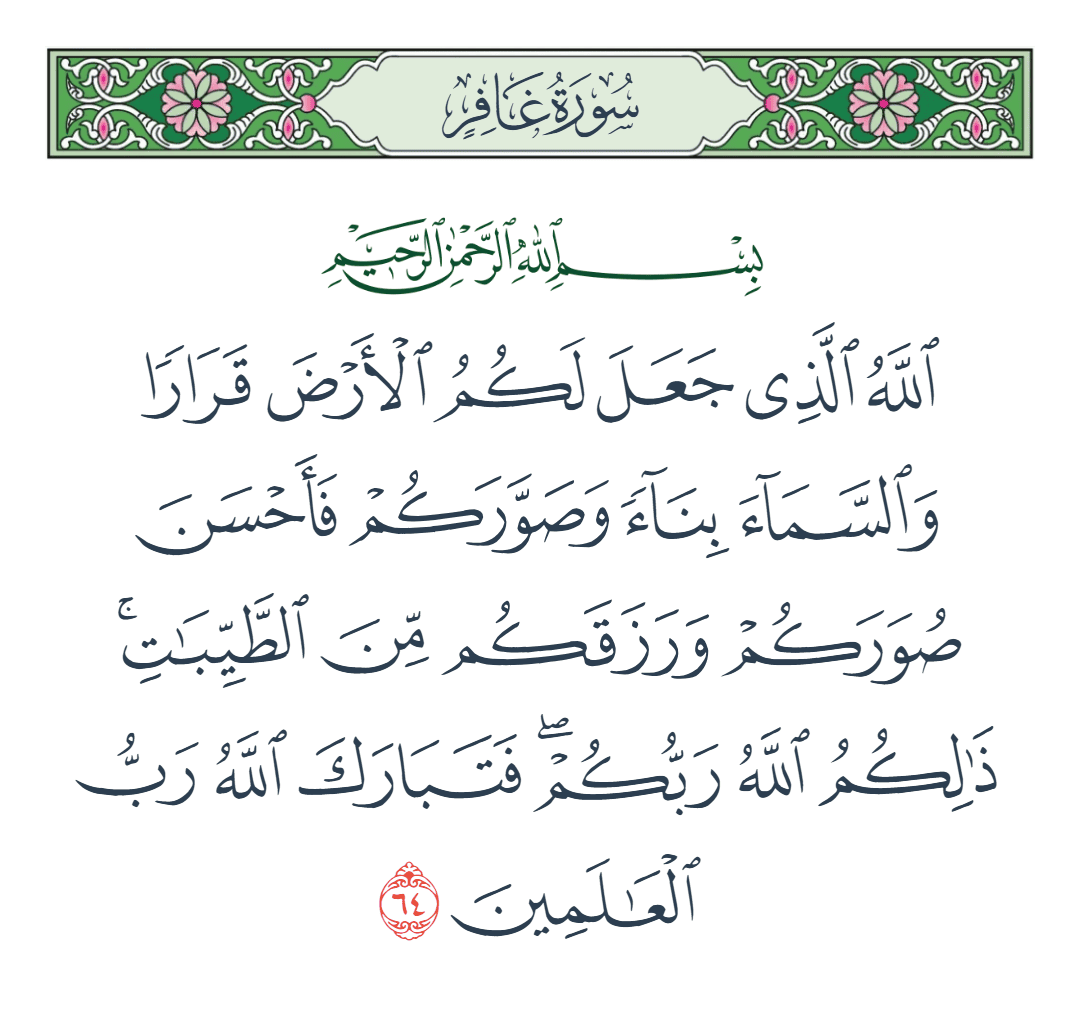 سُورَةُ غَافِرٍ
بِسْمِ ٱللَّهِ ٱلرَّحْمَٰنِ ٱلرَّحِيمِ
ٱللَّهُ ٱلَّذِى جَعَلَ لَكُمُ ٱلْأَرْضَ قَرَارًا
وَٱلسَّمَآءَ بِنَآءً وَصَوَّرَكُمْ فَأَحْسَنَ
صُوَرَكُمْ وَرَزَقَكُم مِّنَ ٱلطَّيِّبَٰتِ ۚ
ذَٰلِكُمُ ٱللَّهُ رَبُّكُمْ ۖ فَتَبَارَكَ ٱللَّهُ رَبُّ
ٱلْعَٰلَمِينَ ٦٤